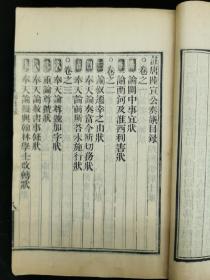 註唐陸宣公奏議目錄
卷之一
論關中事宜狀
卷之二
論兩河及淮西利害狀
論叙遷幸之由狀
奉天論奏當今所切務狀
卷之三
奉天論前所答奏未施行狀
奉天論尊號加字狀
重論尊號狀
奉天論赦書事條狀
奉天論擬與翰林學士改轉狀